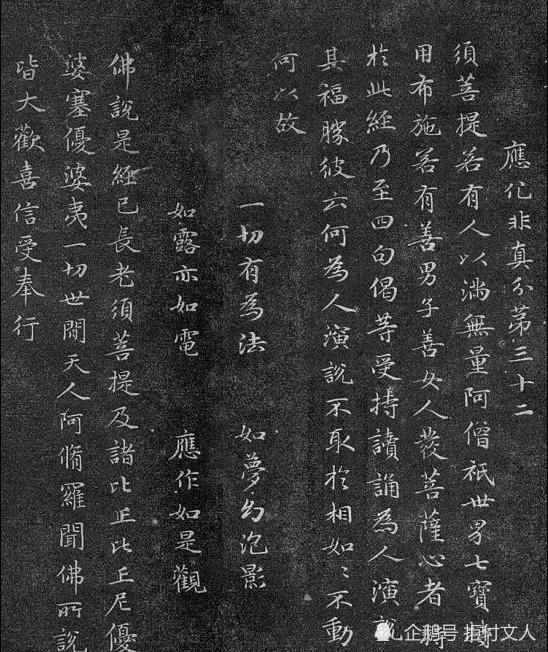 應化非真分第三十二
須菩提若有人以滿無量阿僧祇世界七寶持
用布施若有善男子善女人發菩薩心者持
於此經乃至四句偈等受持讀誦為人演說
其福勝彼云何為人演說不取於相如〻不動
何以故
一切有為法 如夢幻泡影
如露亦如電 應作如是觀
佛說是經已長老須菩提及諸比丘比丘尼優
婆塞優婆夷一切世間天人阿脩羅聞佛所說
皆大歡喜信受奉行
企鹅号 文人